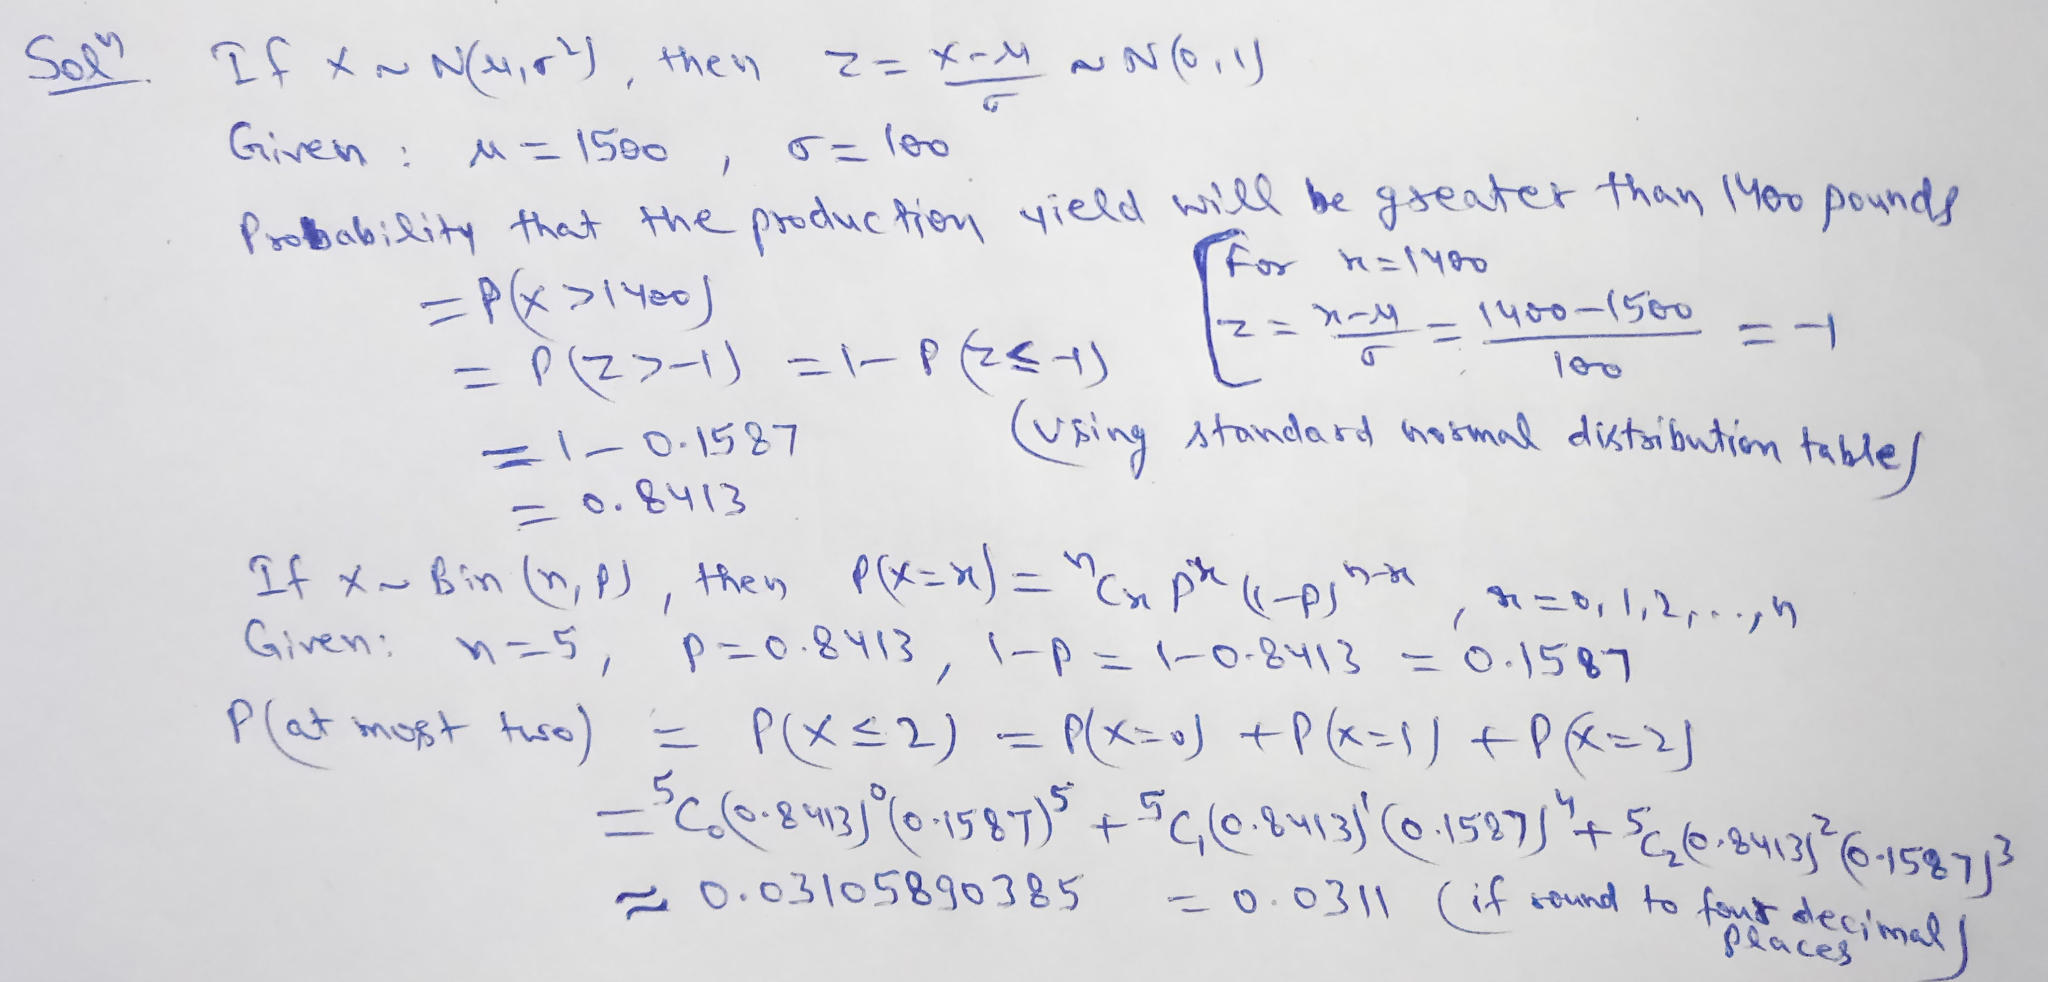 Solⁿ If X ~ N(μ,σ²), then Z = (X-μ)/σ ~ N(0,1)
Given : μ = 1500 , σ = 100
Probability that the production yield will be greater than 1400 pounds
= P(X > 1400)
[For x = 1400
= P(Z > -1) = 1 - P(Z ≤ -1)
z = (x-μ)/σ = (1400-1500)/100 = -1
= 1 - 0.1587 (using standard normal distribution table)
= 0.8413
If X ~ Bin (n, p) , then P(X = x) = ⁿCₓ pˣ (1-p)ⁿ⁻ˣ , x = 0, 1, 2, ..., n
Given: n = 5, p = 0.8413 , 1-p = 1-0.8413 = 0.1587
P(at most two) = P(X ≤ 2) = P(X=0) + P(X=1) + P(X=2)
= ⁵C₀(0.8413)⁰(0.1587)⁵ + ⁵C₁(0.8413)¹(0.1587)⁴ + ⁵C₂(0.8413)²(0.1587)³
≈ 0.03105890385 = 0.0311 (if round to four decimal places)